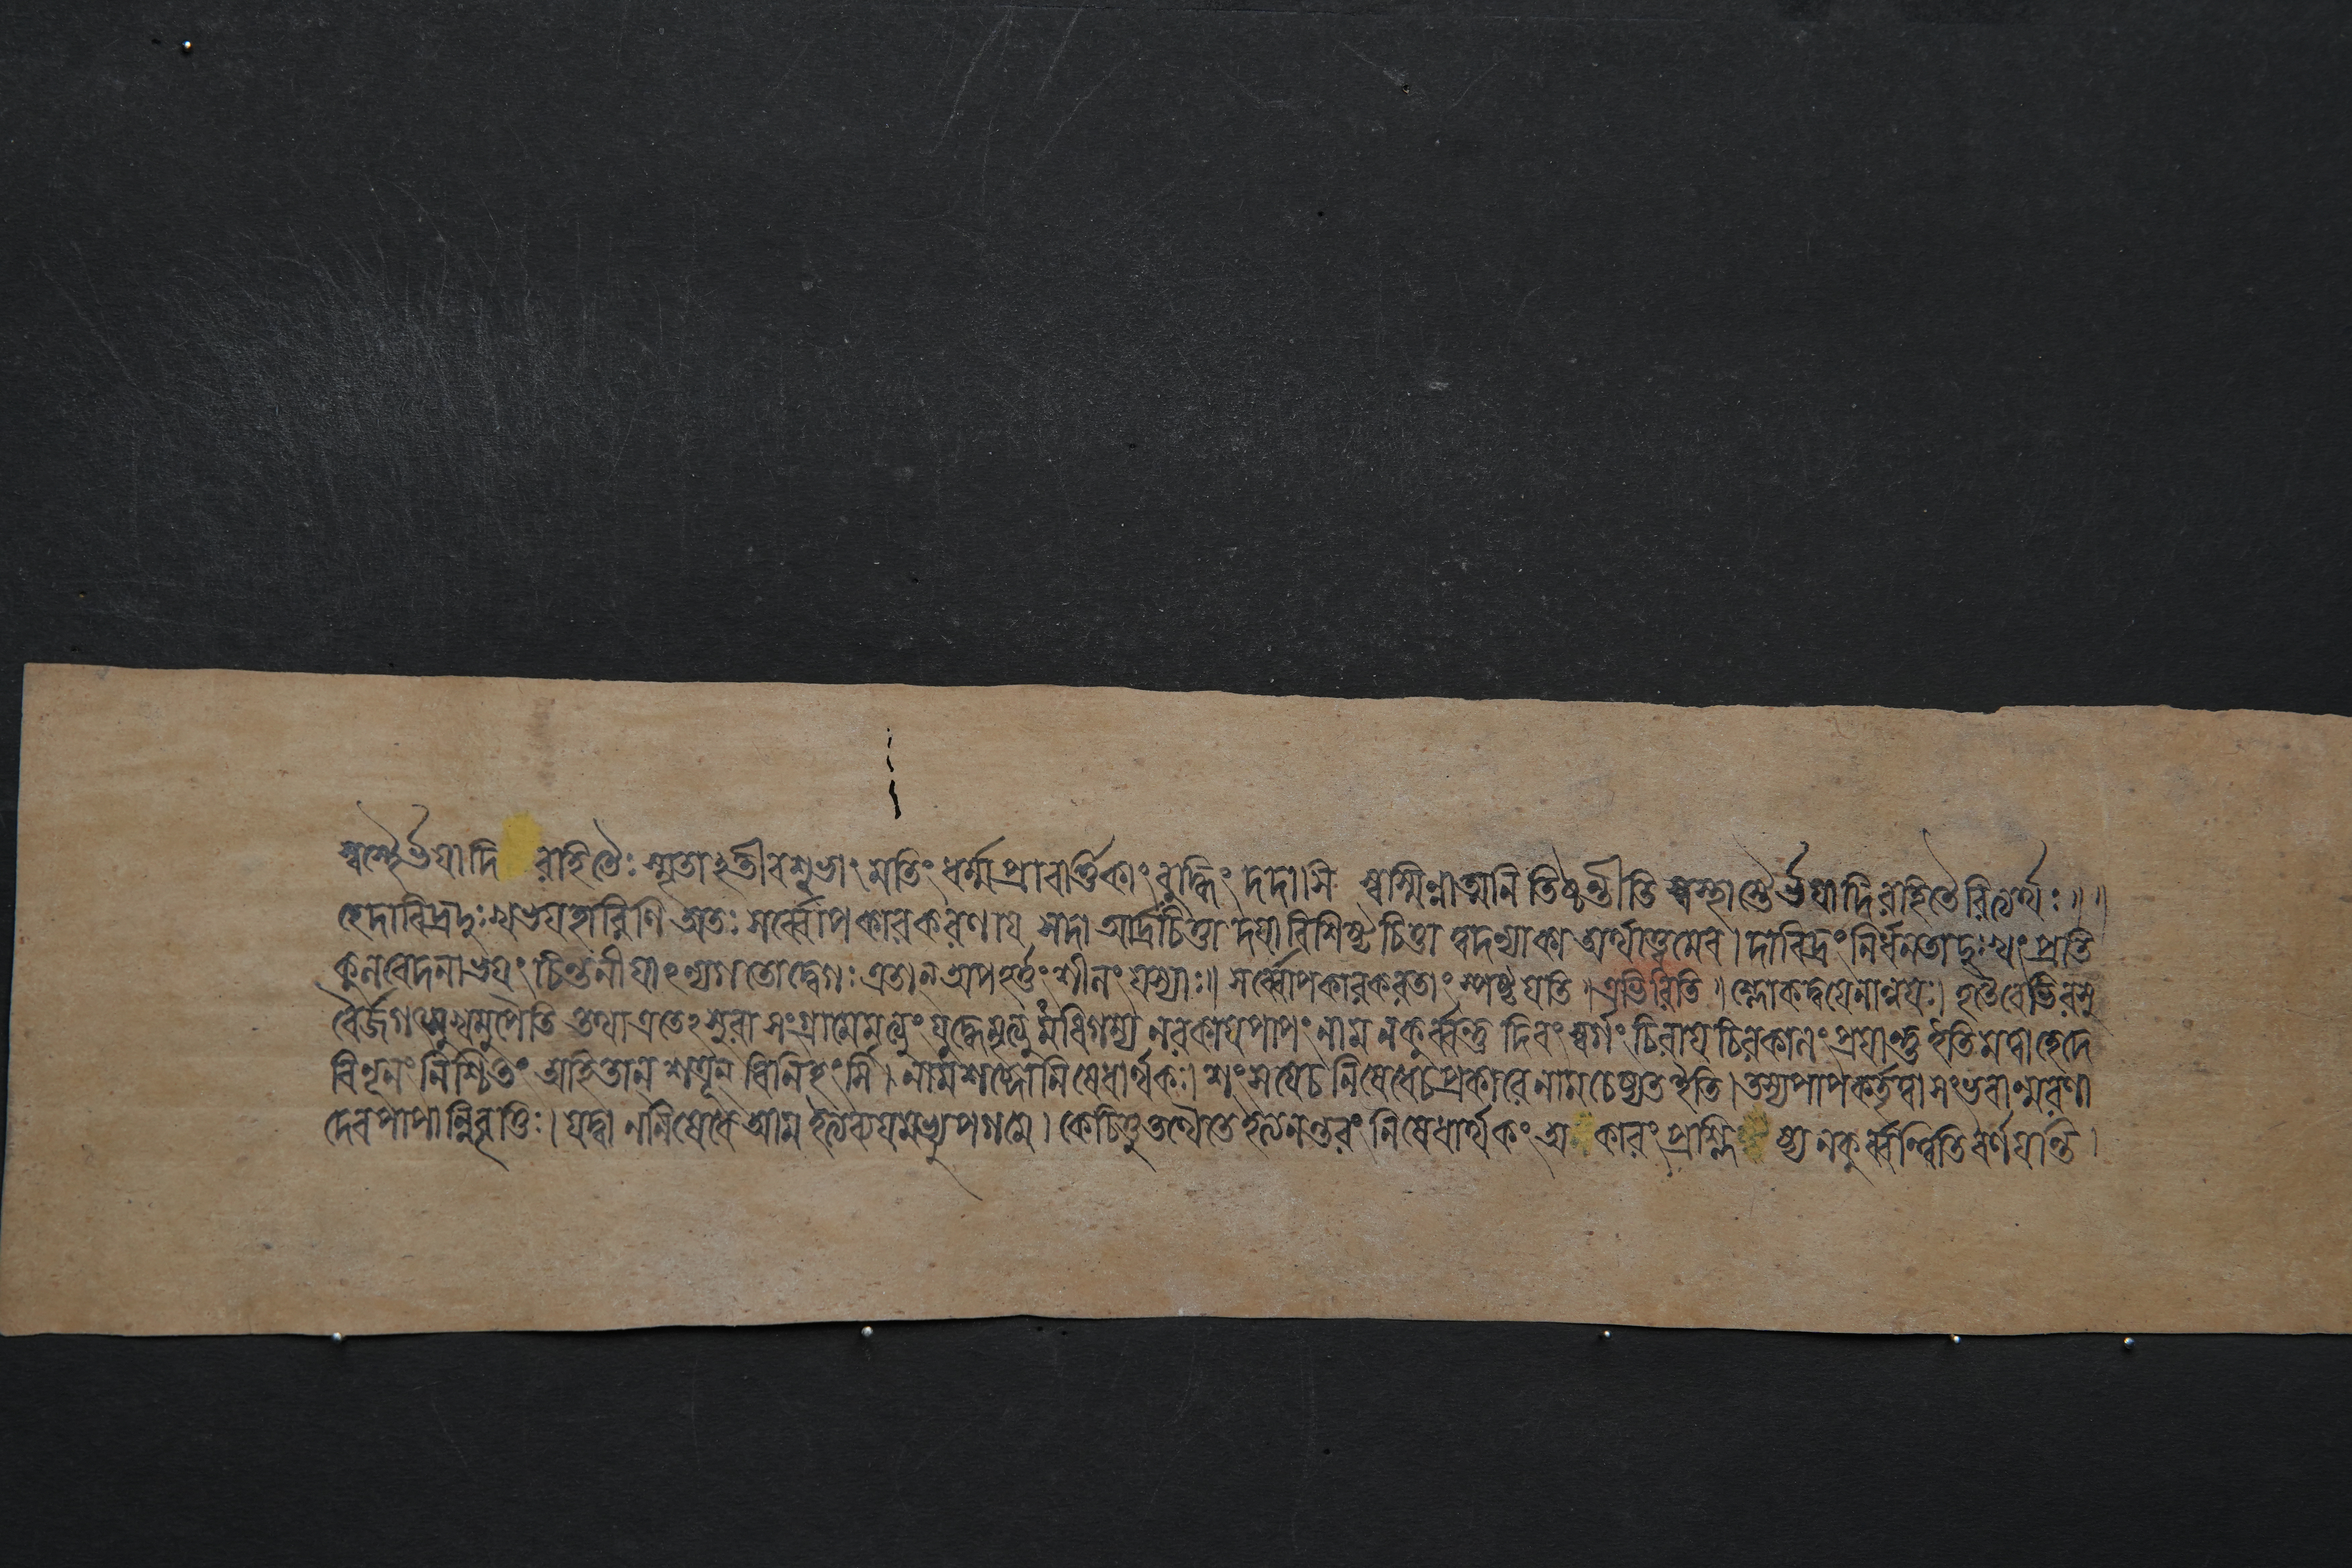 স্বস্থৈর্ভযাদি রহিতৈঃ স্মৃতাঽতীবশুভাং মতিং ধর্ম্মপ্রাবর্ত্তিকাং বুদ্ধিং দদাসি স্বস্মিন্নাত্মনি তিষ্ঠন্তীতি স্বস্থাস্তৈর্ভযাদিরহিতৈরিত্যর্থঃ॥ ॥
হেদারিদ্রদুঃখভযহারিণি অতঃ সর্ব্বোপকারকরণায সদা আর্দ্রচিত্তা দযাবিশিষ্টচিত্তা ত্বদন্যাকা অর্থাত্ত্বমেব। দারিদ্রং নির্ধনতাদুঃখং প্রতি
কুলবেদনাভযং চিন্তনীযাঽন্যগতোদ্বেগঃ এতান অপহর্ত্তুং শীলং যস্যাঃ॥ সর্ব্বোপকারকরতাং স্পষ্টযেতি॥ এভিরিতি॥ শ্লোকদ্বযেনান্বযঃ। হতৈরেভিরসু
রৈর্জগৎসুখমুপৈতি তথা এতেঽসুরা সংগ্রামেমৃত্যুং যুদ্ধেমৃত্যুমধিগম্য নরকাযপাপং নাম নকুর্ব্বন্তু দিবং স্বর্গং চিরায চিরকালং প্রযান্তু ইতিমত্বাহেদে
বিণূনং নিশ্চিতং অহিতান্ শত্রূন্ বিনিহংসি। নামশব্দোনিষেধার্থকঃ। শং সত্যেচ নিষেধেচ প্রকারে নামচেষ্যত ইতি। তস্যপাপকর্তৃত্বাসংভবান্মরণা
দেবপাপান্নিবৃত্তিঃ। যদ্বা ননিষেধে আম ইত্যব্যযমভ্যুপগমে। কেচিত্তু তথৈতে ইত্যনন্তরং নিষেধার্থকং অ কারং প্রশ্লি ষ্য নকুর্ব্বন্ত্বিতি বর্ণযন্তি।